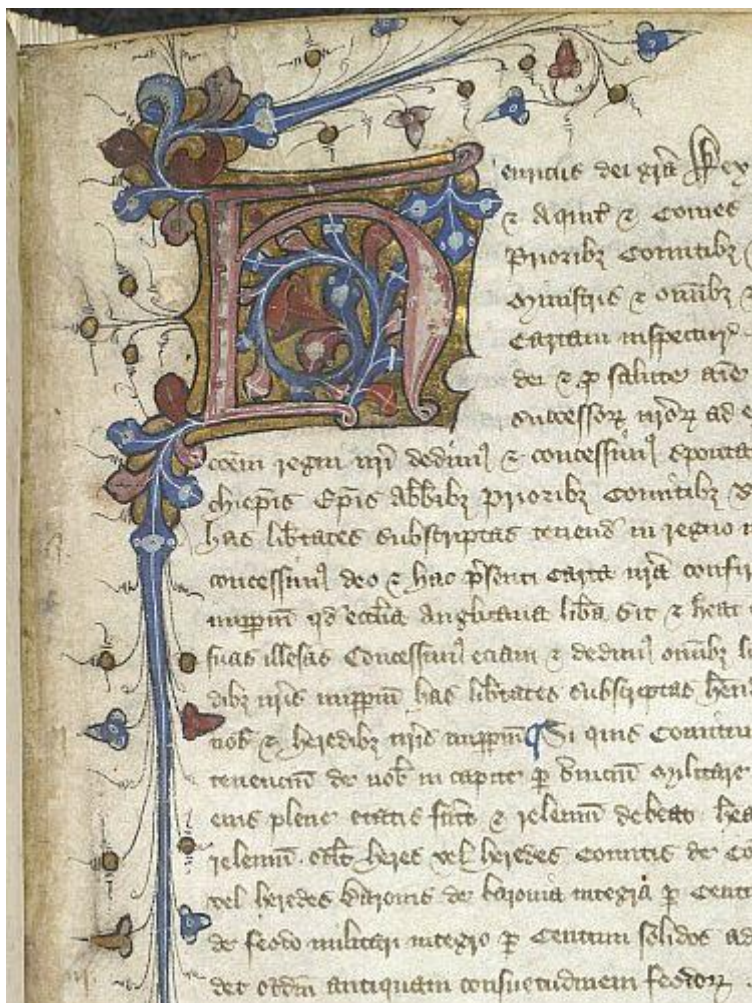 Henricus dei gra Rex
& Aquit & Comes
Prioribz Comitibz
Ministris & omibz &
Cartam inspectur
dei & p salute aie
successoꝝ nroꝝ ad e
coem regni nri dedim9 & concessim9 sponta
chiepis Epis Abbibz Prioribz Comitibz
has libtates subscriptas tenend in regno n
concessim9 deo & hac psenti carta nra confir
imppm qd ecclia Anglicana liba sit & heat
suas illesas Concessim9 eciam & dedim9 omibz li
dibz nris imppm has libtates subscriptas hend
nob & heredibz nris imppm ¶ Si quis Comitu
tenenciu de nob in capite p suiciu Militare
eius plene etatis fuit & releuiu debeat hea
releuiu scilt heres vel heredes Comitis de Co
vel heredes Baronis de baronia integra p Cent
de feodo militari integro p Centum solidos ad
det scdm antiquam consuetudinem feodoꝝ